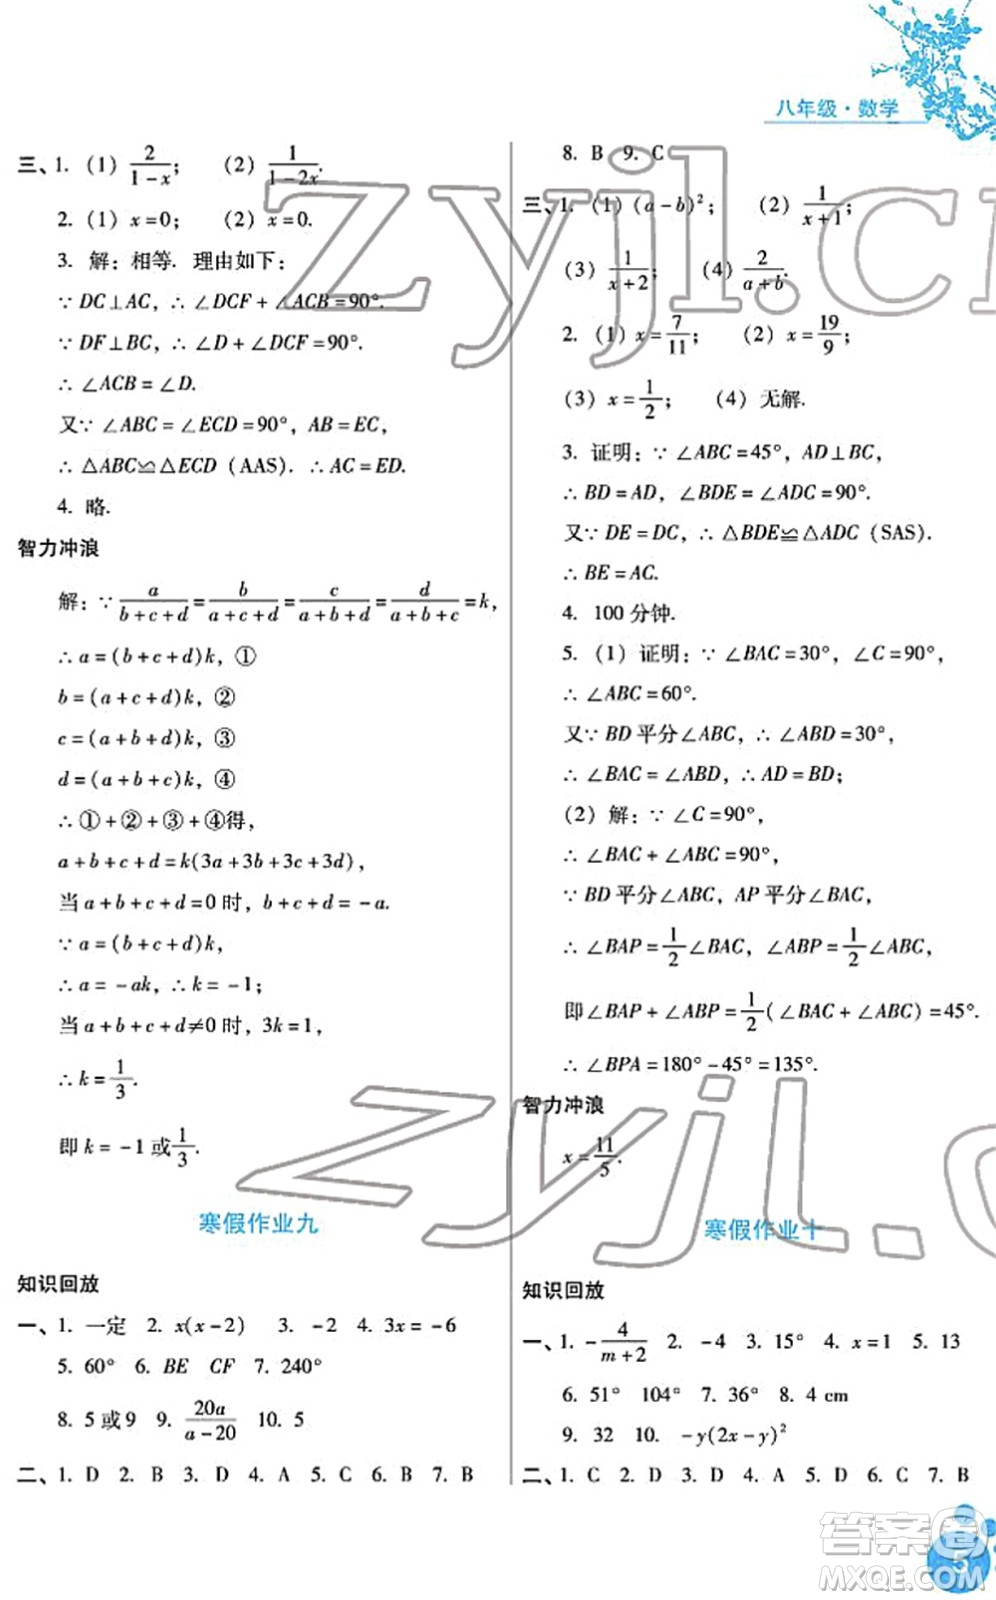 八年级·数学
三、1. (1) 2/(1-x)； (2) 1/(1-2x).
2. (1) x=0； (2) x=0.
3. 解：相等. 理由如下：
∵ DC⊥AC，∴ ∠DCF + ∠ACB=90°.
∵ DF⊥BC，∴ ∠D + ∠DCF=90°.
∴ ∠ACB = ∠D.
又∵ ∠ABC = ∠ECD=90°，AB=EC，
∴ △ABC≌△ECD (AAS). ∴ AC=ED.
4. 略.
智力冲浪
解：∵ a/(b+c+d) = b/(a+c+d) = c/(a+b+d) = d/(a+b+c) =k，
∴ a=(b+c+d)k，①
b=(a+c+d)k，②
c=(a+b+d)k，③
d=(a+b+c)k，④
∴ ①+②+③+④得，
a+b+c+d=k(3a+3b+3c+3d)，
当 a+b+c+d=0 时，b+c+d=-a.
∵ a=(b+c+d)k，
∴ a=-ak，∴ k=-1；
当 a+b+c+d≠0 时，3k=1，
∴ k=1/3.
即 k=-1 或 1/3.
寒假作业九
知识回放
一、1. 一定 2. x(x-2) 3. -2 4. 3x=-6
5. 60° 6. BE CF 7. 240°
8. 5 或 9 9. 20a/(a-20) 10. 5
二、1. D 2. B 3. D 4. A 5. C 6. B 7. B
8. B 9. C
三、1. (1) (a-b)²； (2) 1/(x+1)；
(3) 1/(x+2)； (4) 2/(a+b).
2. (1) x=7/11； (2) x=19/9；
(3) x=1/2； (4) 无解.
3. 证明：∵ ∠ABC=45°，AD⊥BC，
∴ BD=AD，∠BDE=∠ADC=90°.
又∵ DE=DC，∴ △BDE≌△ADC (SAS).
∴ BE=AC.
4. 100 分钟.
5. (1) 证明：∵ ∠BAC=30°，∠C=90°，
∴ ∠ABC=60°.
又∵ BD 平分∠ABC，∴ ∠ABD=30°，
∴ ∠BAC=∠ABD，∴ AD=BD；
(2) 解：∵ ∠C=90°，
∴ ∠BAC+∠ABC=90°，
∵ BD 平分∠ABC，AP 平分∠BAC，
∴ ∠BAP=1/2∠BAC，∠ABP=1/2∠ABC，
即∠BAP+∠ABP=1/2(∠BAC+∠ABC)=45°.
∴ ∠BPA=180°-45°=135°.
智力冲浪
x=11/5.
寒假作业十
知识回放
一、1. -4/(m+2) 2. -4 3. 15° 4. x=1 5. 13
6. 51° 104° 7. 36° 8. 4 cm
9. 32 10. -y(2x-y)²
二、1. C 2. D 3. D 4. A 5. D 6. C 7. B
5
zyjl.cn
zyjl.cn
答案圈
MXQE.COM